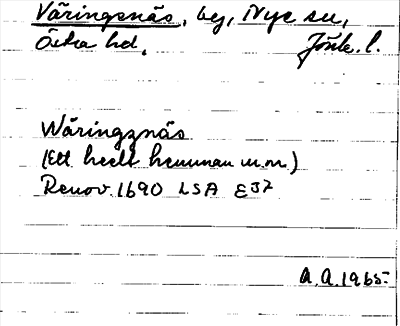 Väringsnäs, by, Nye sn,
Östra hd. Jönk. l.
Wäringznäs
(Ett heelt hemman m.m.)
Renov. 1690 LSA E37
A.A. 1965.